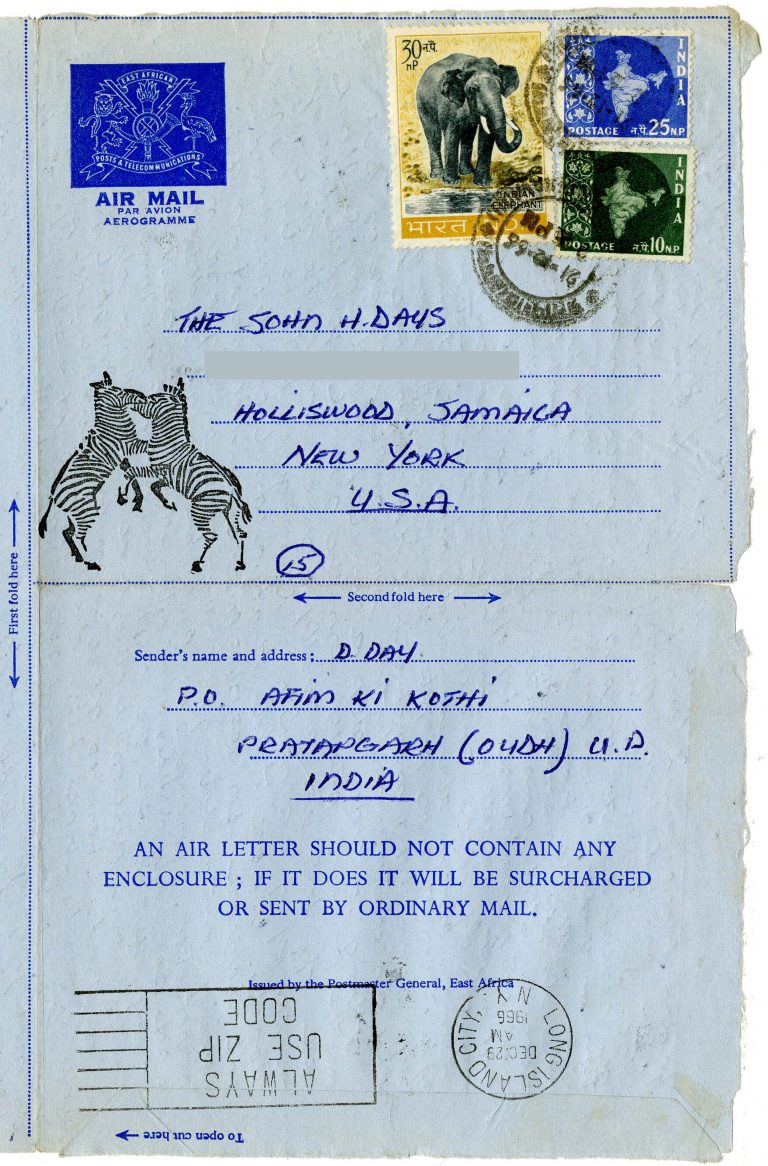 EAST AFRICAN
POSTS & TELECOMMUNICATIONS
AIR MAIL
PAR AVION
AEROGRAMME
30 न.पै.
nP
INDIAN
ELEPHANT
भारत
INDIA
POSTAGE न.पै. 25 N.P.
INDIA
POSTAGE न.पै. 10 N.P.
THE JOHN H. DAYS
HOLLISWOOD, JAMAICA
NEW YORK
U.S.A.
15
First fold here
Second fold here
Sender's name and address: D DAY
P.O. AFIM KI KOTHI
PRATAPGARH (OUDH) U.P.
INDIA
AN AIR LETTER SHOULD NOT CONTAIN ANY
ENCLOSURE ; IF IT DOES IT WILL BE SURCHARGED
OR SENT BY ORDINARY MAIL.
Issued by the Postmaster General, East Africa
ALWAYS
USE ZIP
CODE
LONG ISLAND CITY, N.Y.
DEC 29
AM
1966
To open cut here